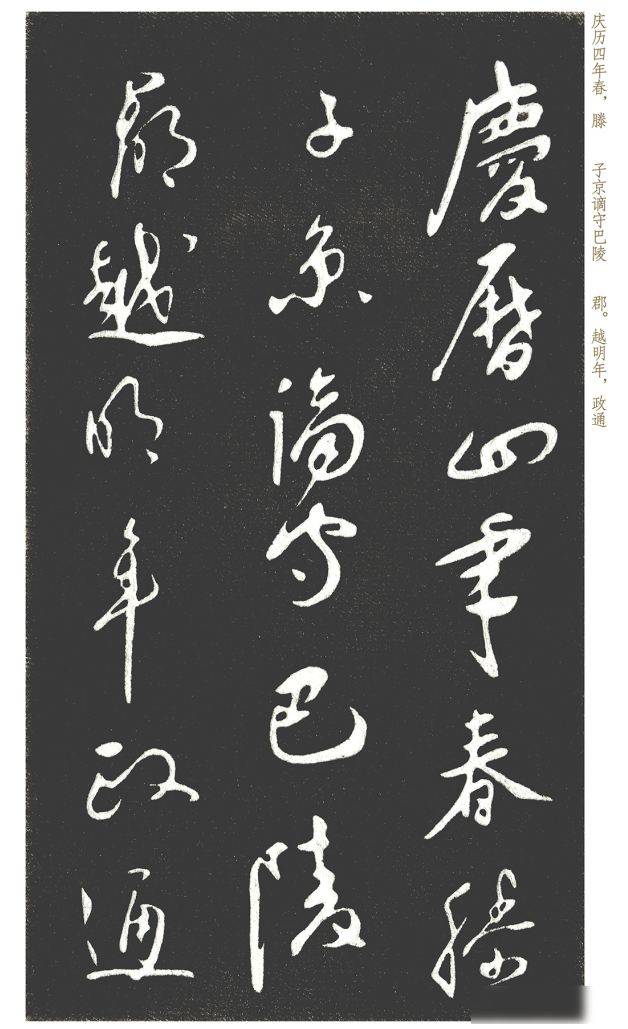 庆历四年春，滕 子京谪守巴陵 郡。越明年，政通
慶曆四年春滕
子京謫守巴陵
郡越明年政通